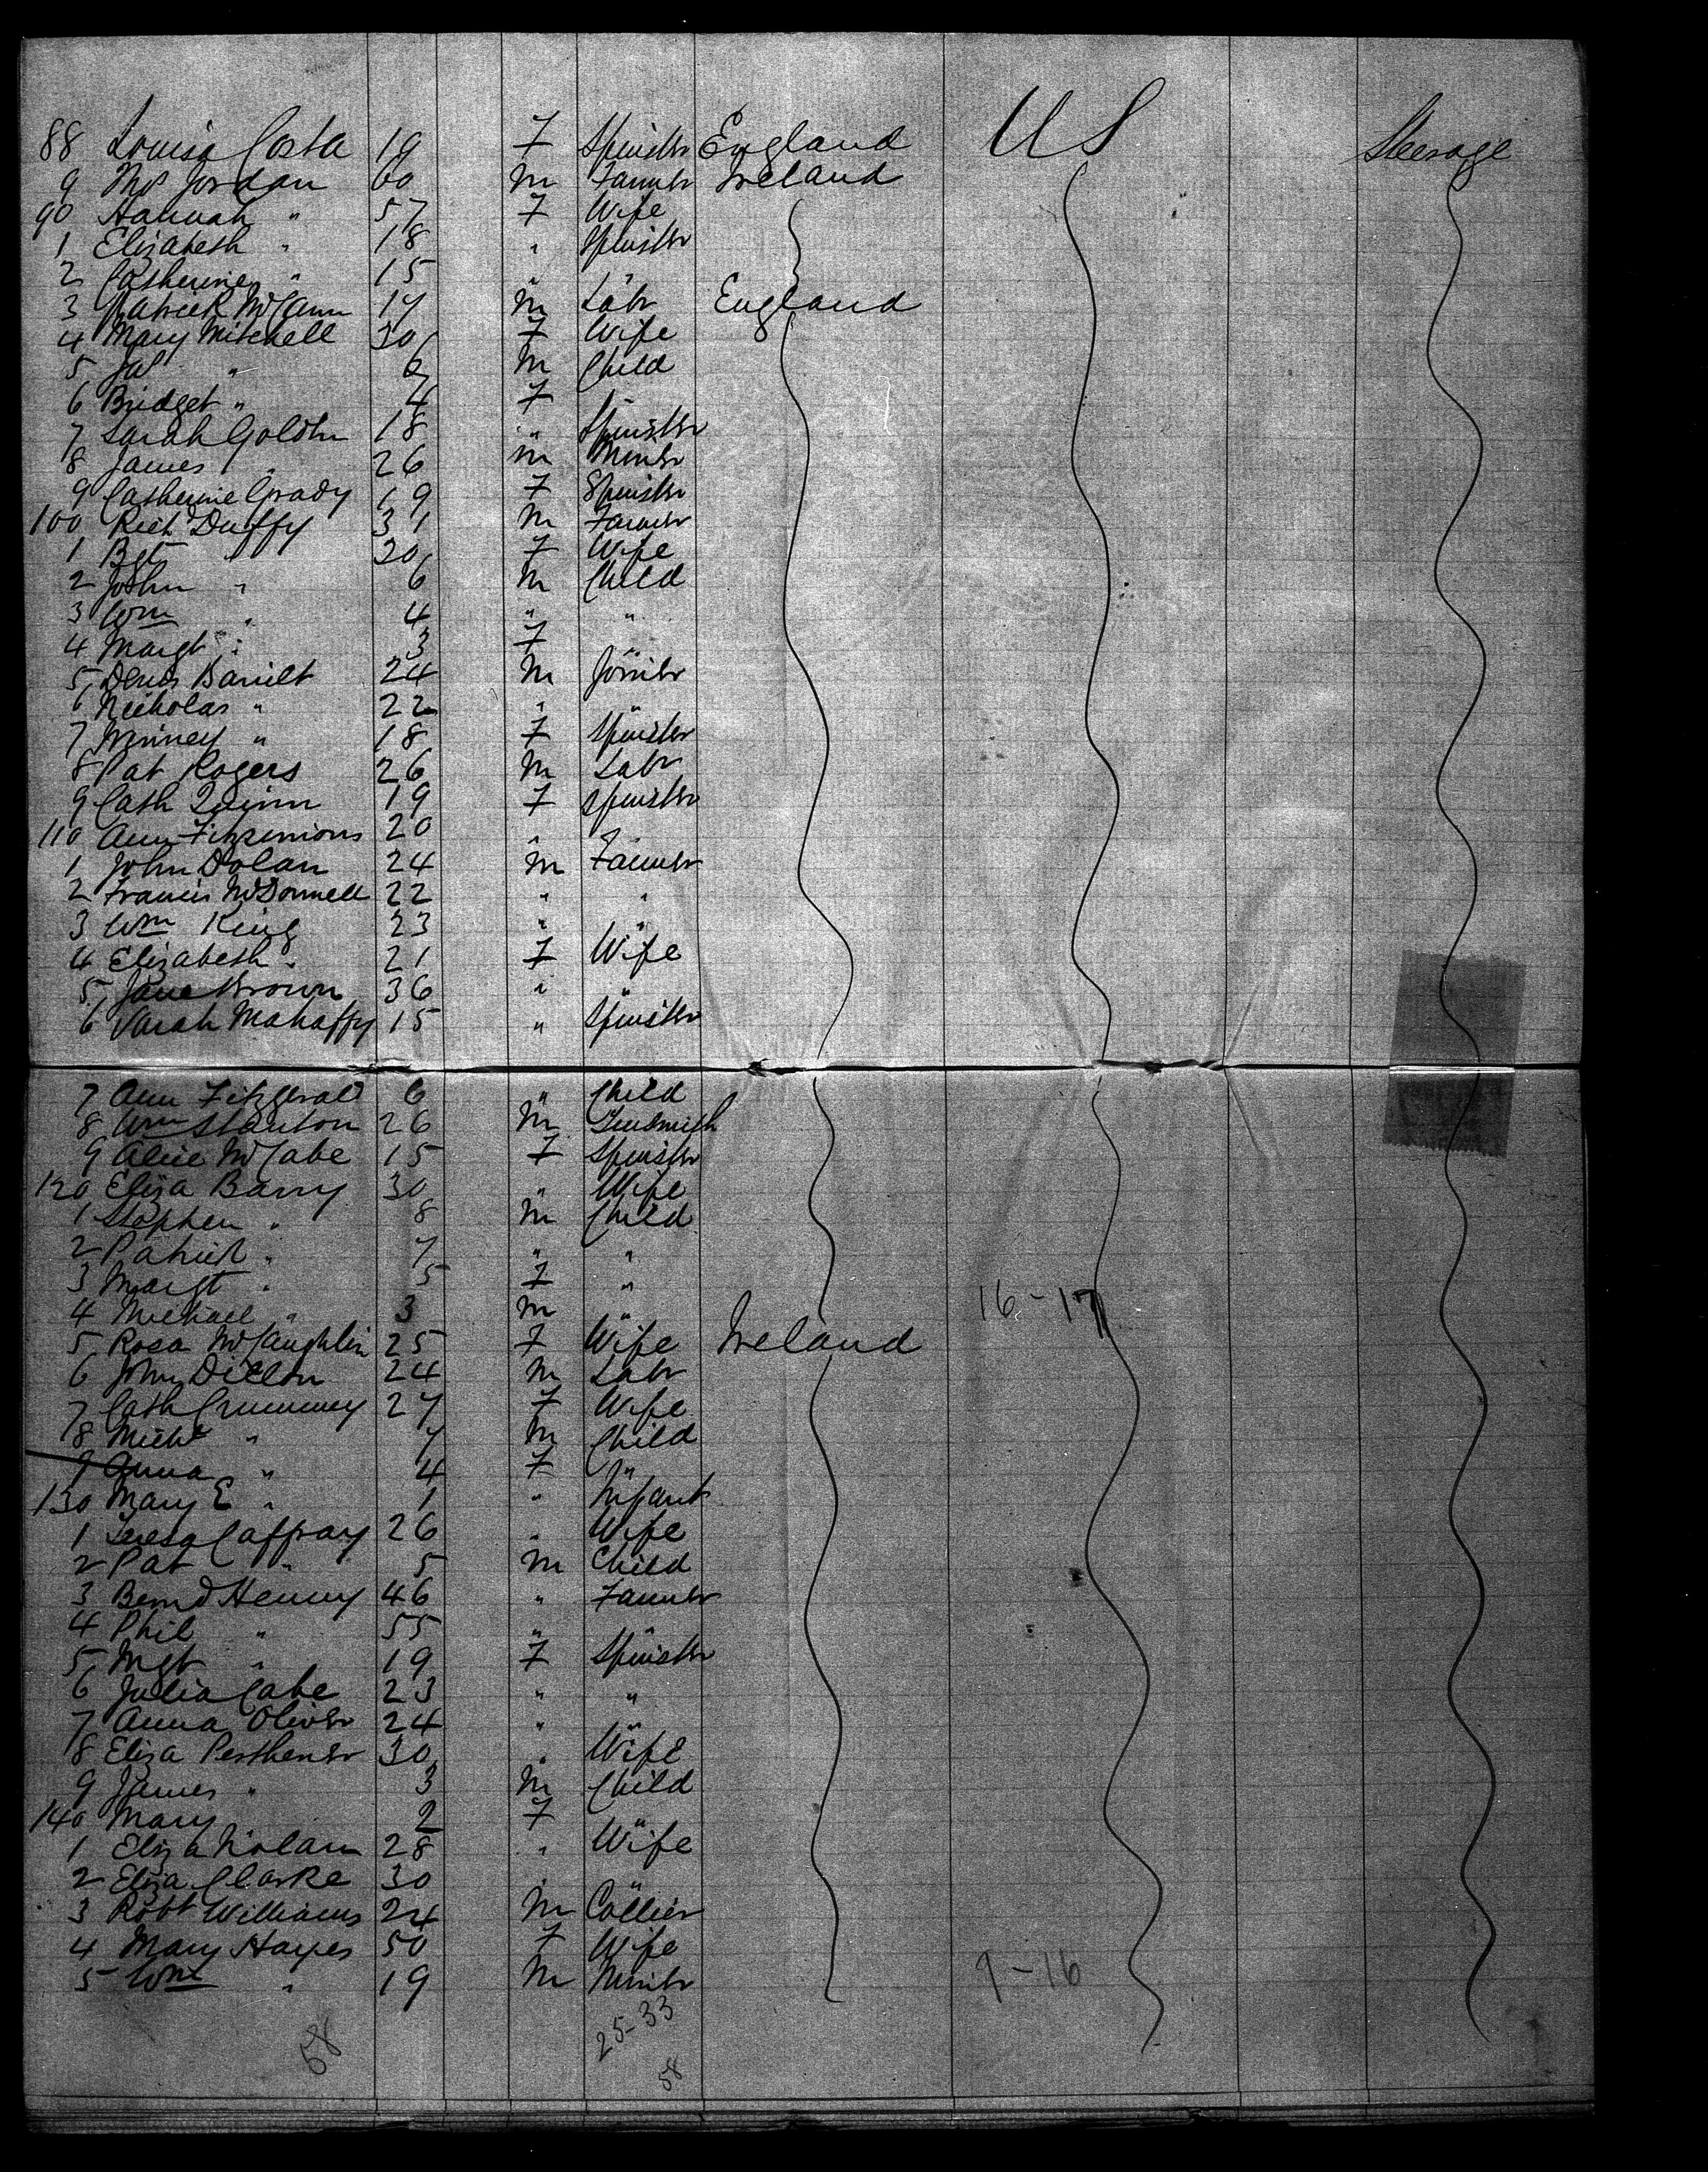 88 Louisa Costa 19 F Spinster England US Steerage
9 Ths Jordan 60 M Farmer Ireland
90 Hannah " 57 F Wife
1 Elizabeth " 18 " Spinster
2 Catherine " 15 "
3 Patrick McCann 17 M Labr England
4 Mary Mitchell 30 F Wife
5 Jas " 6 M Child
6 Bridget " 4 F "
7 Sarah Golden 18 " Spinster
8 James " 26 M Miner
9 Catherine Grady 19 F Spinster
100 Richd Duffy 31 M Farmer
1 Bgt " 30 F Wife
2 John " 6 M Child
3 Wm " 4 " "
4 Margt " 3 F "
5 Denis 24 M Joiner
6 Nicholas " 22 " "
7 Winney " 18 F Spinster
8 Pat Rogers 26 M Labr
9 Cath Quinn 19 F Spinster
110 Ann Fitzsimions 20 " "
1 John Dolan 24 M Farmer
2 Francis McDonnell 22 " "
3 Wm King 23 " "
4 Elizabeth " 21 F Wife
5 Jane Brown 36 " "
6 Sarah Mahaffy 15 " Spinster
7 Ann Fitzgerald 6 " Child
8 Wm Stanton 26 M Tinsmith
9 Alice McCabe 15 F Spinster
120 Eliza Barry 30 " Wife
1 Stephen " 8 M Child
2 Patrick " 7 " "
3 Margt " 5 F "
4 Michael " 3 M " 16-17
5 Rosa McCaughlin 25 F Wife Ireland
6 John Dillon 24 M Labr
7 Cath Crummey 27 F Wife
8 Michl " 7 M Child
9 Anna " 4 F "
130 Mary E " 1 " Infant
1 Teresa Caffray 26 " Wife
2 Pat " 5 M Child
3 Bernd Henny 46 " Farmer
4 Phil " 55 " "
5 Mgt " 19 F Spinster
6 Julia Cabe 23 " "
7 Anna Oliver 24 " "
8 Eliza Pesthener 30 " Wife
9 James " 3 M Child
140 Mary 2 F "
1 Eliza Nolan 28 " Wife
2 Eliza Clarke 30 " "
3 Robt Williams 24 M Collier
4 Mary Hayes 50 F Wife
5 Wm " 19 M Miner 9-16
58 25-33
58